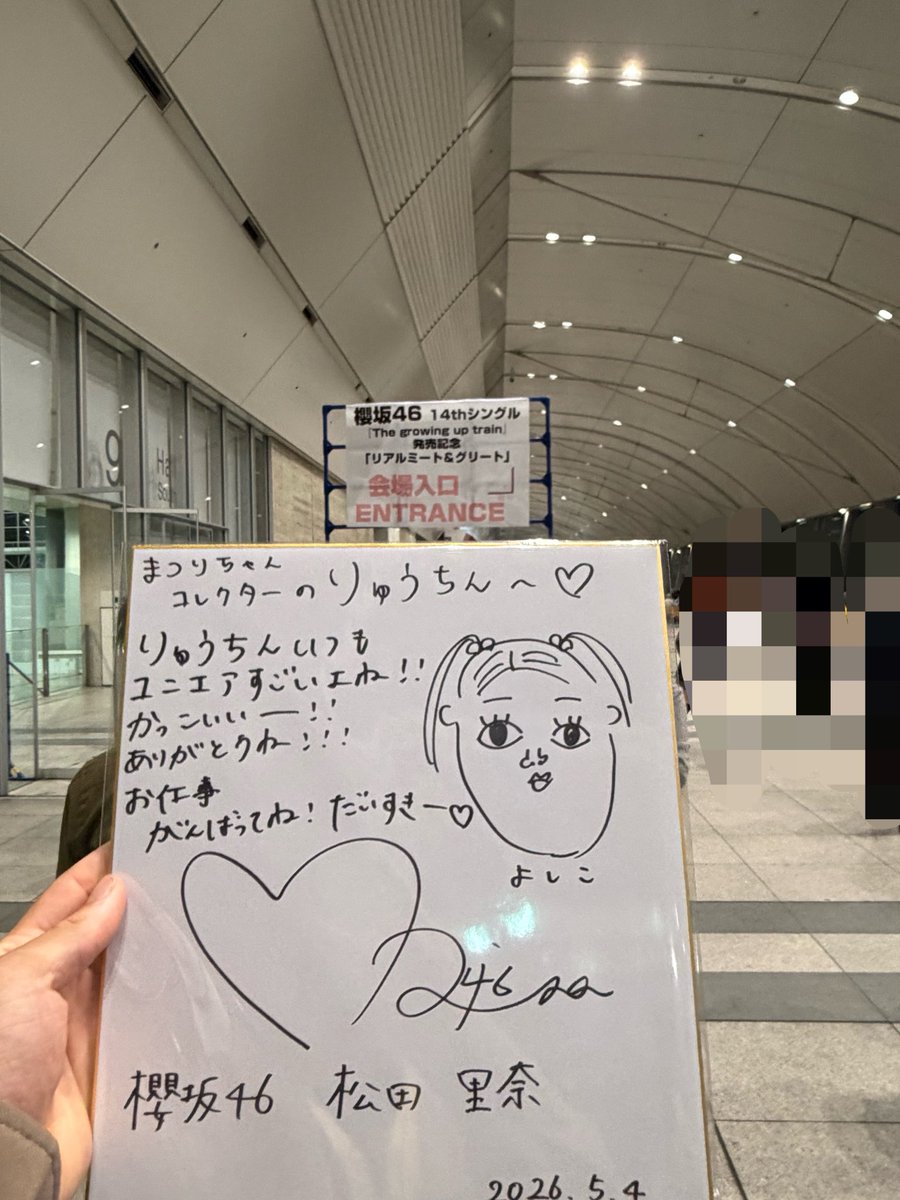 9
Ha
櫻坂46 14thシングル
「The growing up train」
発売記念
「リアルミート&グリート」
会場入口
ENTRANCE
まつりちゃん
コレクターのりゅうちん〜♡
りゅうちんいつも
ユニエアすごいよね!!
かっこいいー!!
ありがとうね!!!
お仕事
がんばってね!だいすきー♡
よしこ
46
櫻坂46 松田 里奈
2026.5.4